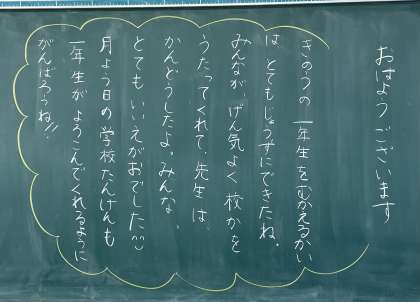 おはようございます
きのうの一年生をむかえるかい
は とてもじょうずにできたね。
みんなが げん気よく 校かを
うたってくれて、先生は、
かんどうしたよ。みんな、
とても いいえがおでした^^
月よう日の学校たんけんも
一年生が よろこんでくれるように
がんばろうね!!